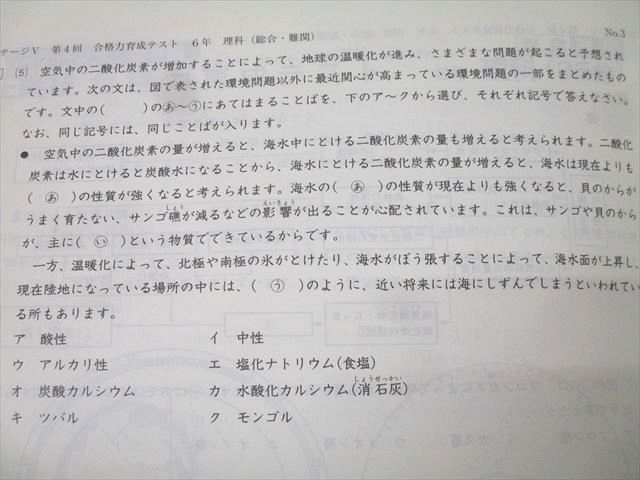 テージⅤ 第4回 合格力育成テスト 6年 理科(総合・難関) No.3
(5) 空気中の二酸化炭素が増加することによって、地球の温暖化が進み、さまざまな問題が起こると予想され
ています。次の文は、図で表された環境問題以外に最近関心が高まっている環境問題の一部をまとめたもの
です。文中の( )のあ~うにあてはまることばを、下のア~クから選び、それぞれ記号で答えなさい。
なお、同じ記号には、同じことばが入ります。
● 空気中の二酸化炭素の量が増えると、海水中にとける二酸化炭素の量も増えると考えられます。二酸化
炭素は水にとけると炭酸水になることから、海水にとける二酸化炭素の量が増えると、海水は現在よりも
( あ )の性質が強くなると考えられます。海水の( あ )の性質が現在よりも強くなると、貝のからが
うまく育たない、サンゴ礁(しょう)が減るなどの影響(えいきょう)が出ることが心配されています。これは、サンゴや貝のから
が、主に( い )という物質でできているからです。
一方、温暖化によって、北極や南極の氷がとけたり、海水がぼう張することによって、海水面が上昇し、
現在陸地になっている場所の中には、( う )のように、近い将来には海にしずんでしまうといわれてい
る所もあります。
ア 酸性 イ 中性
ウ アルカリ性 エ 塩化ナトリウム(食塩)
オ 炭酸カルシウム カ 水酸化カルシウム(消石灰(しょうせっかい))
キ ツバル ク モンゴル